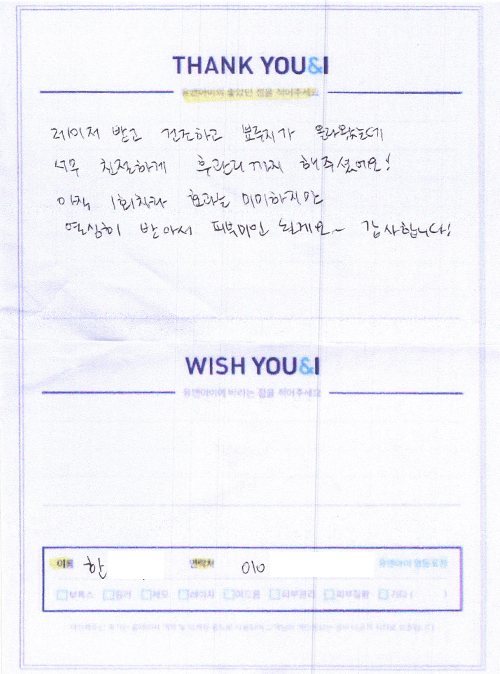 THANK YOU&I
유앤아이의 좋았던 점을 적어주세요
레이저 받고 건조하고 뾰루지가 올라왔는데
너무 친절하게 후관리까지 해주셨어요!
아직 1회차라 효과는 미미하지만
열심히 받아서 피부미인 되게요~ 감사합니다!
WISH YOU&I
유앤아이에 바라는 점을 적어주세요
이름 한 연락처 010 유앤아이 영등포점
보톡스 필러 제모 레이저 여드름 피부관리 피부질환 기타 ( )